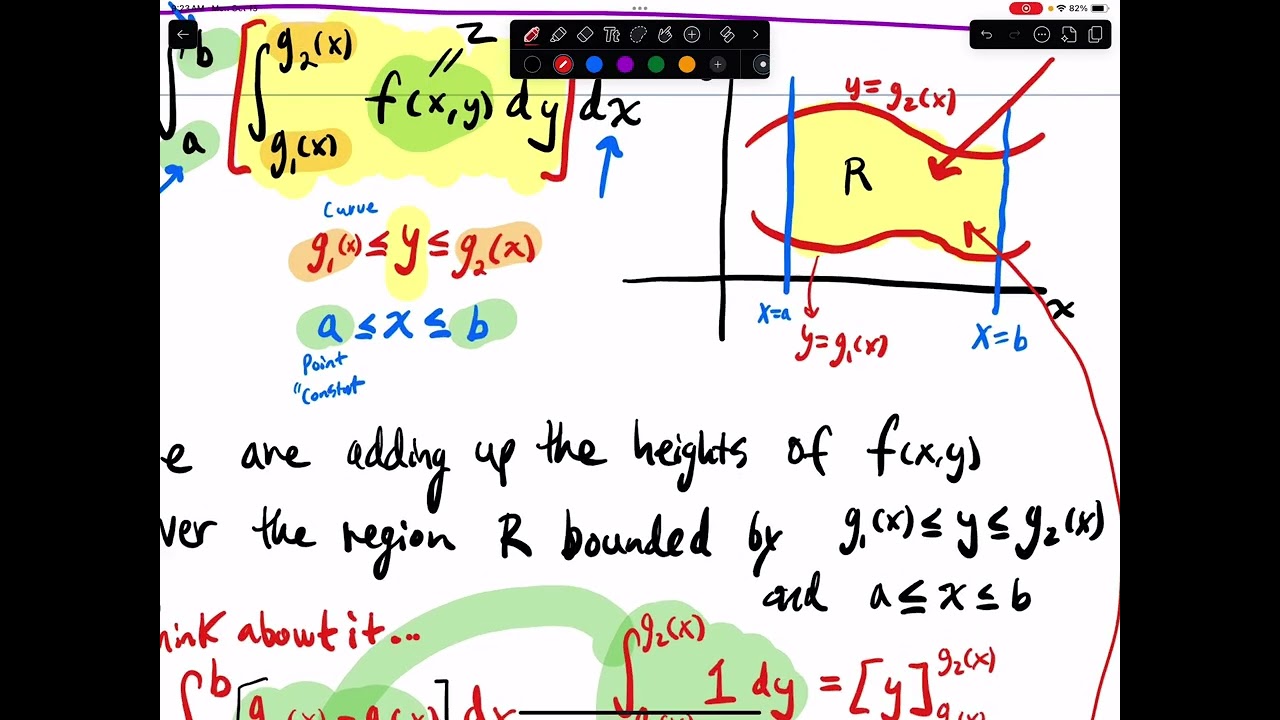 82%
Tt
∫ₐᵇ [∫_{g₁(x)}^{g₂(x)} f(x,y) dy] dx
z
Curve
g₁(x) ≤ y ≤ g₂(x)
a ≤ x ≤ b
Point
y = g₂(x)
R
x
x=a
x=b
y=g₁(x)
e are adding up the heights of f(x,y)
ver the region R bounded by g₁(x) ≤ y ≤ g₂(x)
and a ≤ x ≤ b
hink about it...
∫_{g₁(x)}^{g₂(x)} 1 dy = [y]_{g₁(x)}^{g₂(x)}